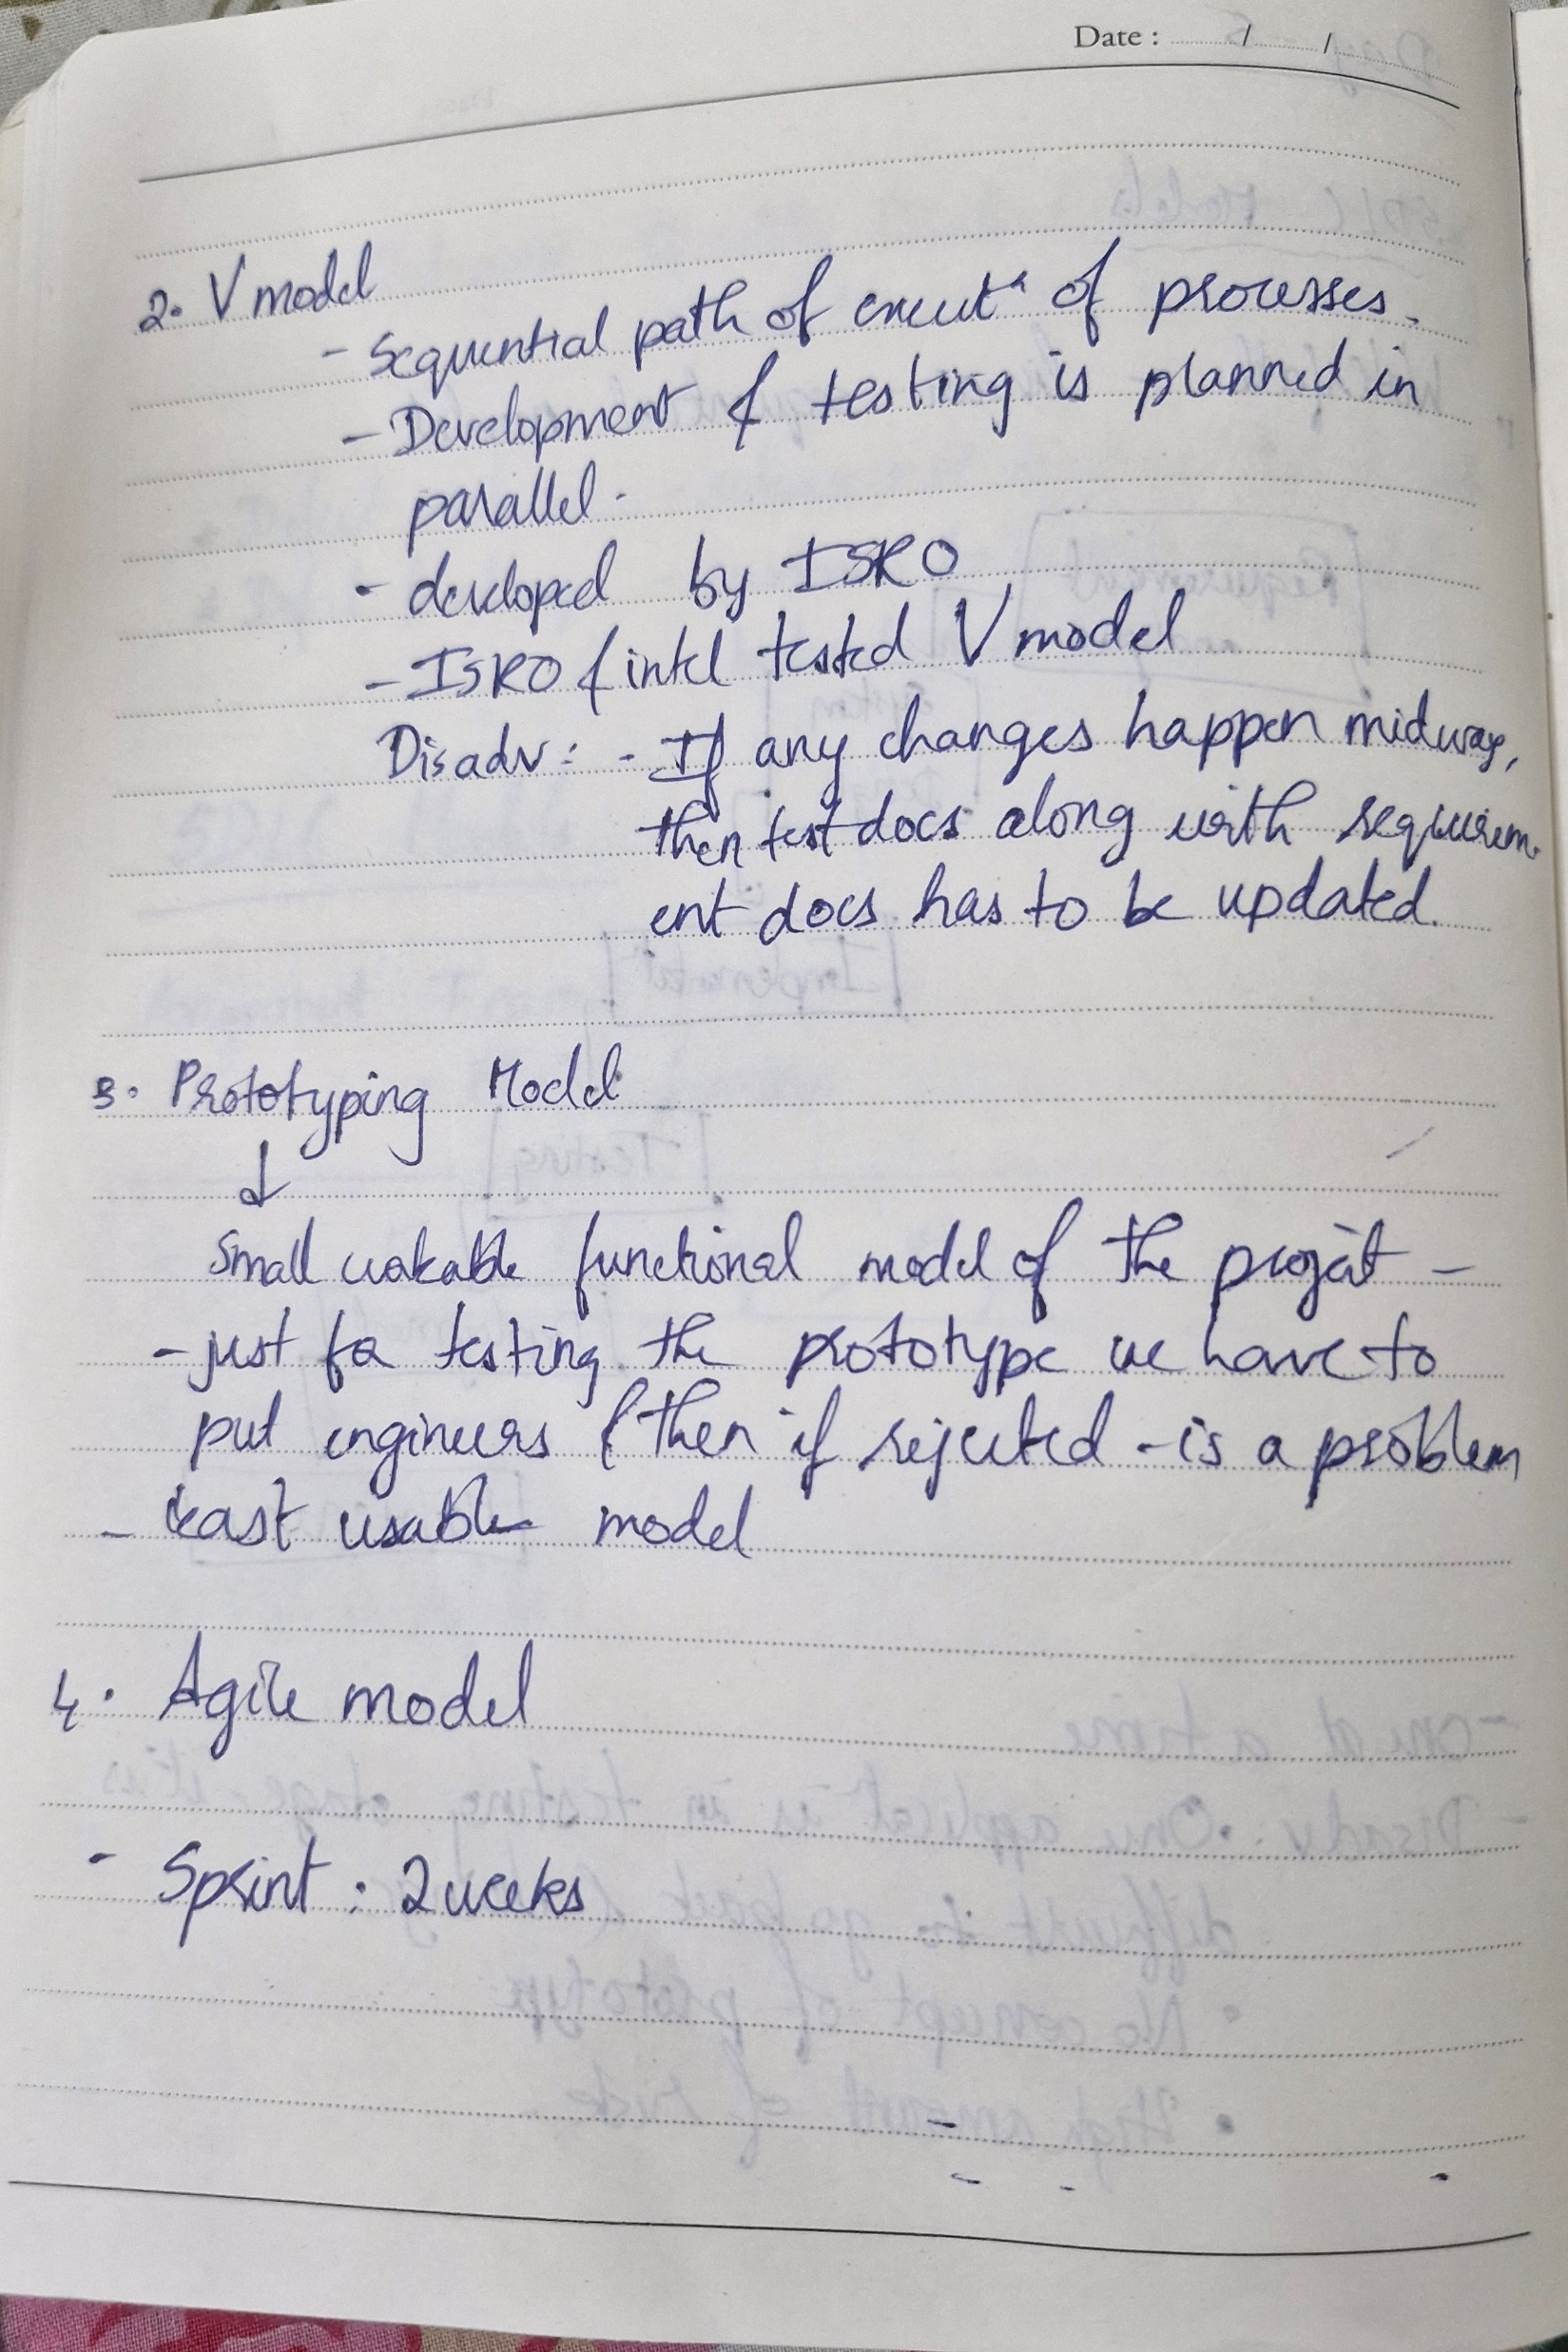 Date : / /
2. V model
- Sequential path of execut^n of processes.
- Development & testing is planned in
parallel.
- developed by ISRO
- ISRO & intel tested V model
Disadv: - If any changes happen midway,
then test docs along with requirem-
ent docs has to be updated.
3. Prototyping Model
↓
Small workable functional model of the project -
- just for testing the prototype we have to
put engineers & then if rejected - is a problem
- least usable model
4. Agile model
- Sprint : 2 weeks